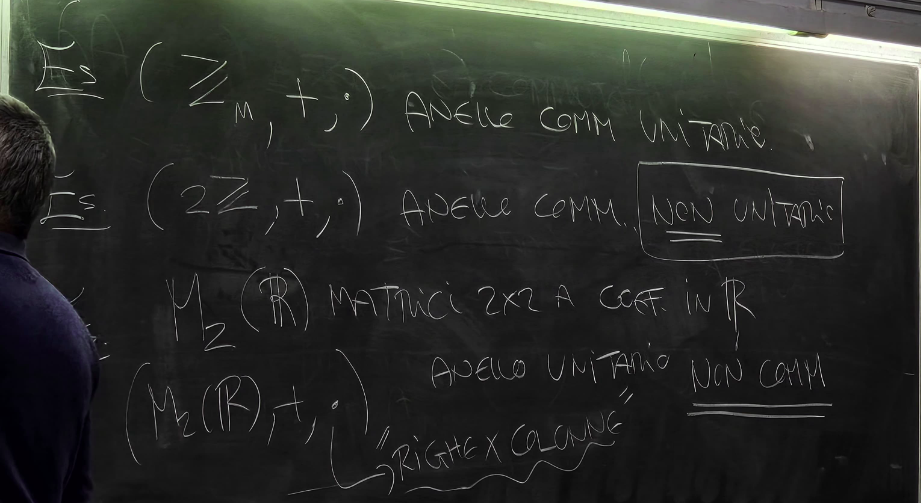 Es (ℤₙ, +, ·) ANELLO COMM UNITARIO.
Es. (2ℤ, +, ·) ANELLO COMM. NON UNITARIO
M₂(ℝ) MATRICI 2x2 A COEF. IN ℝ
(M₂(ℝ), +, ·) ANELLO UNITARIO NON COMM
"RIGHE X COLONNE"